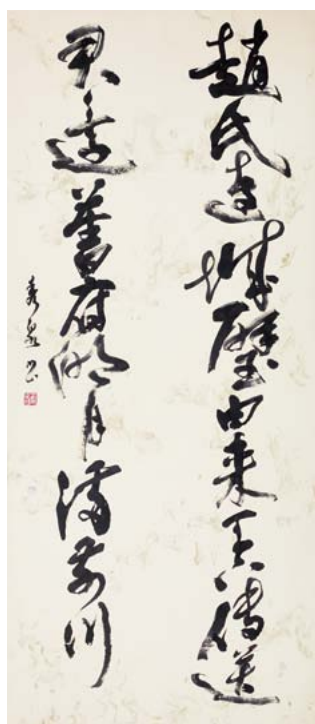 趙氏連城璧由来天下傳送
君還舊府明月滿前川
秀泉書